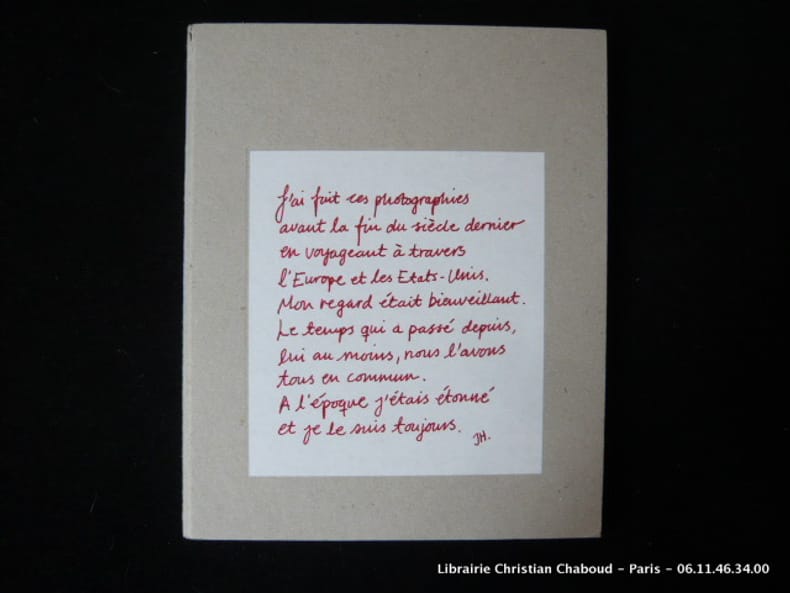 J'ai fait ces photographies
avant la fin du siècle dernier
en voyageant à travers
l'Europe et les Etats-Unis.
Mon regard était bienveillant.
Le temps qui a passé depuis,
lui au moins, nous l'avons
tous en commun.
A l'époque j'étais étonné
et je le suis toujours.
JH.
Librairie Christian Chaboud - Paris - 06.11.46.34.00